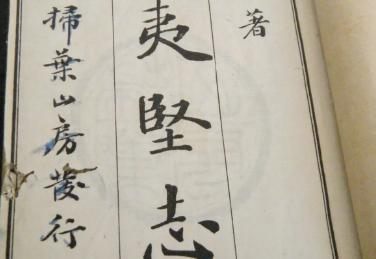 著
夷堅志
掃葉山房發行